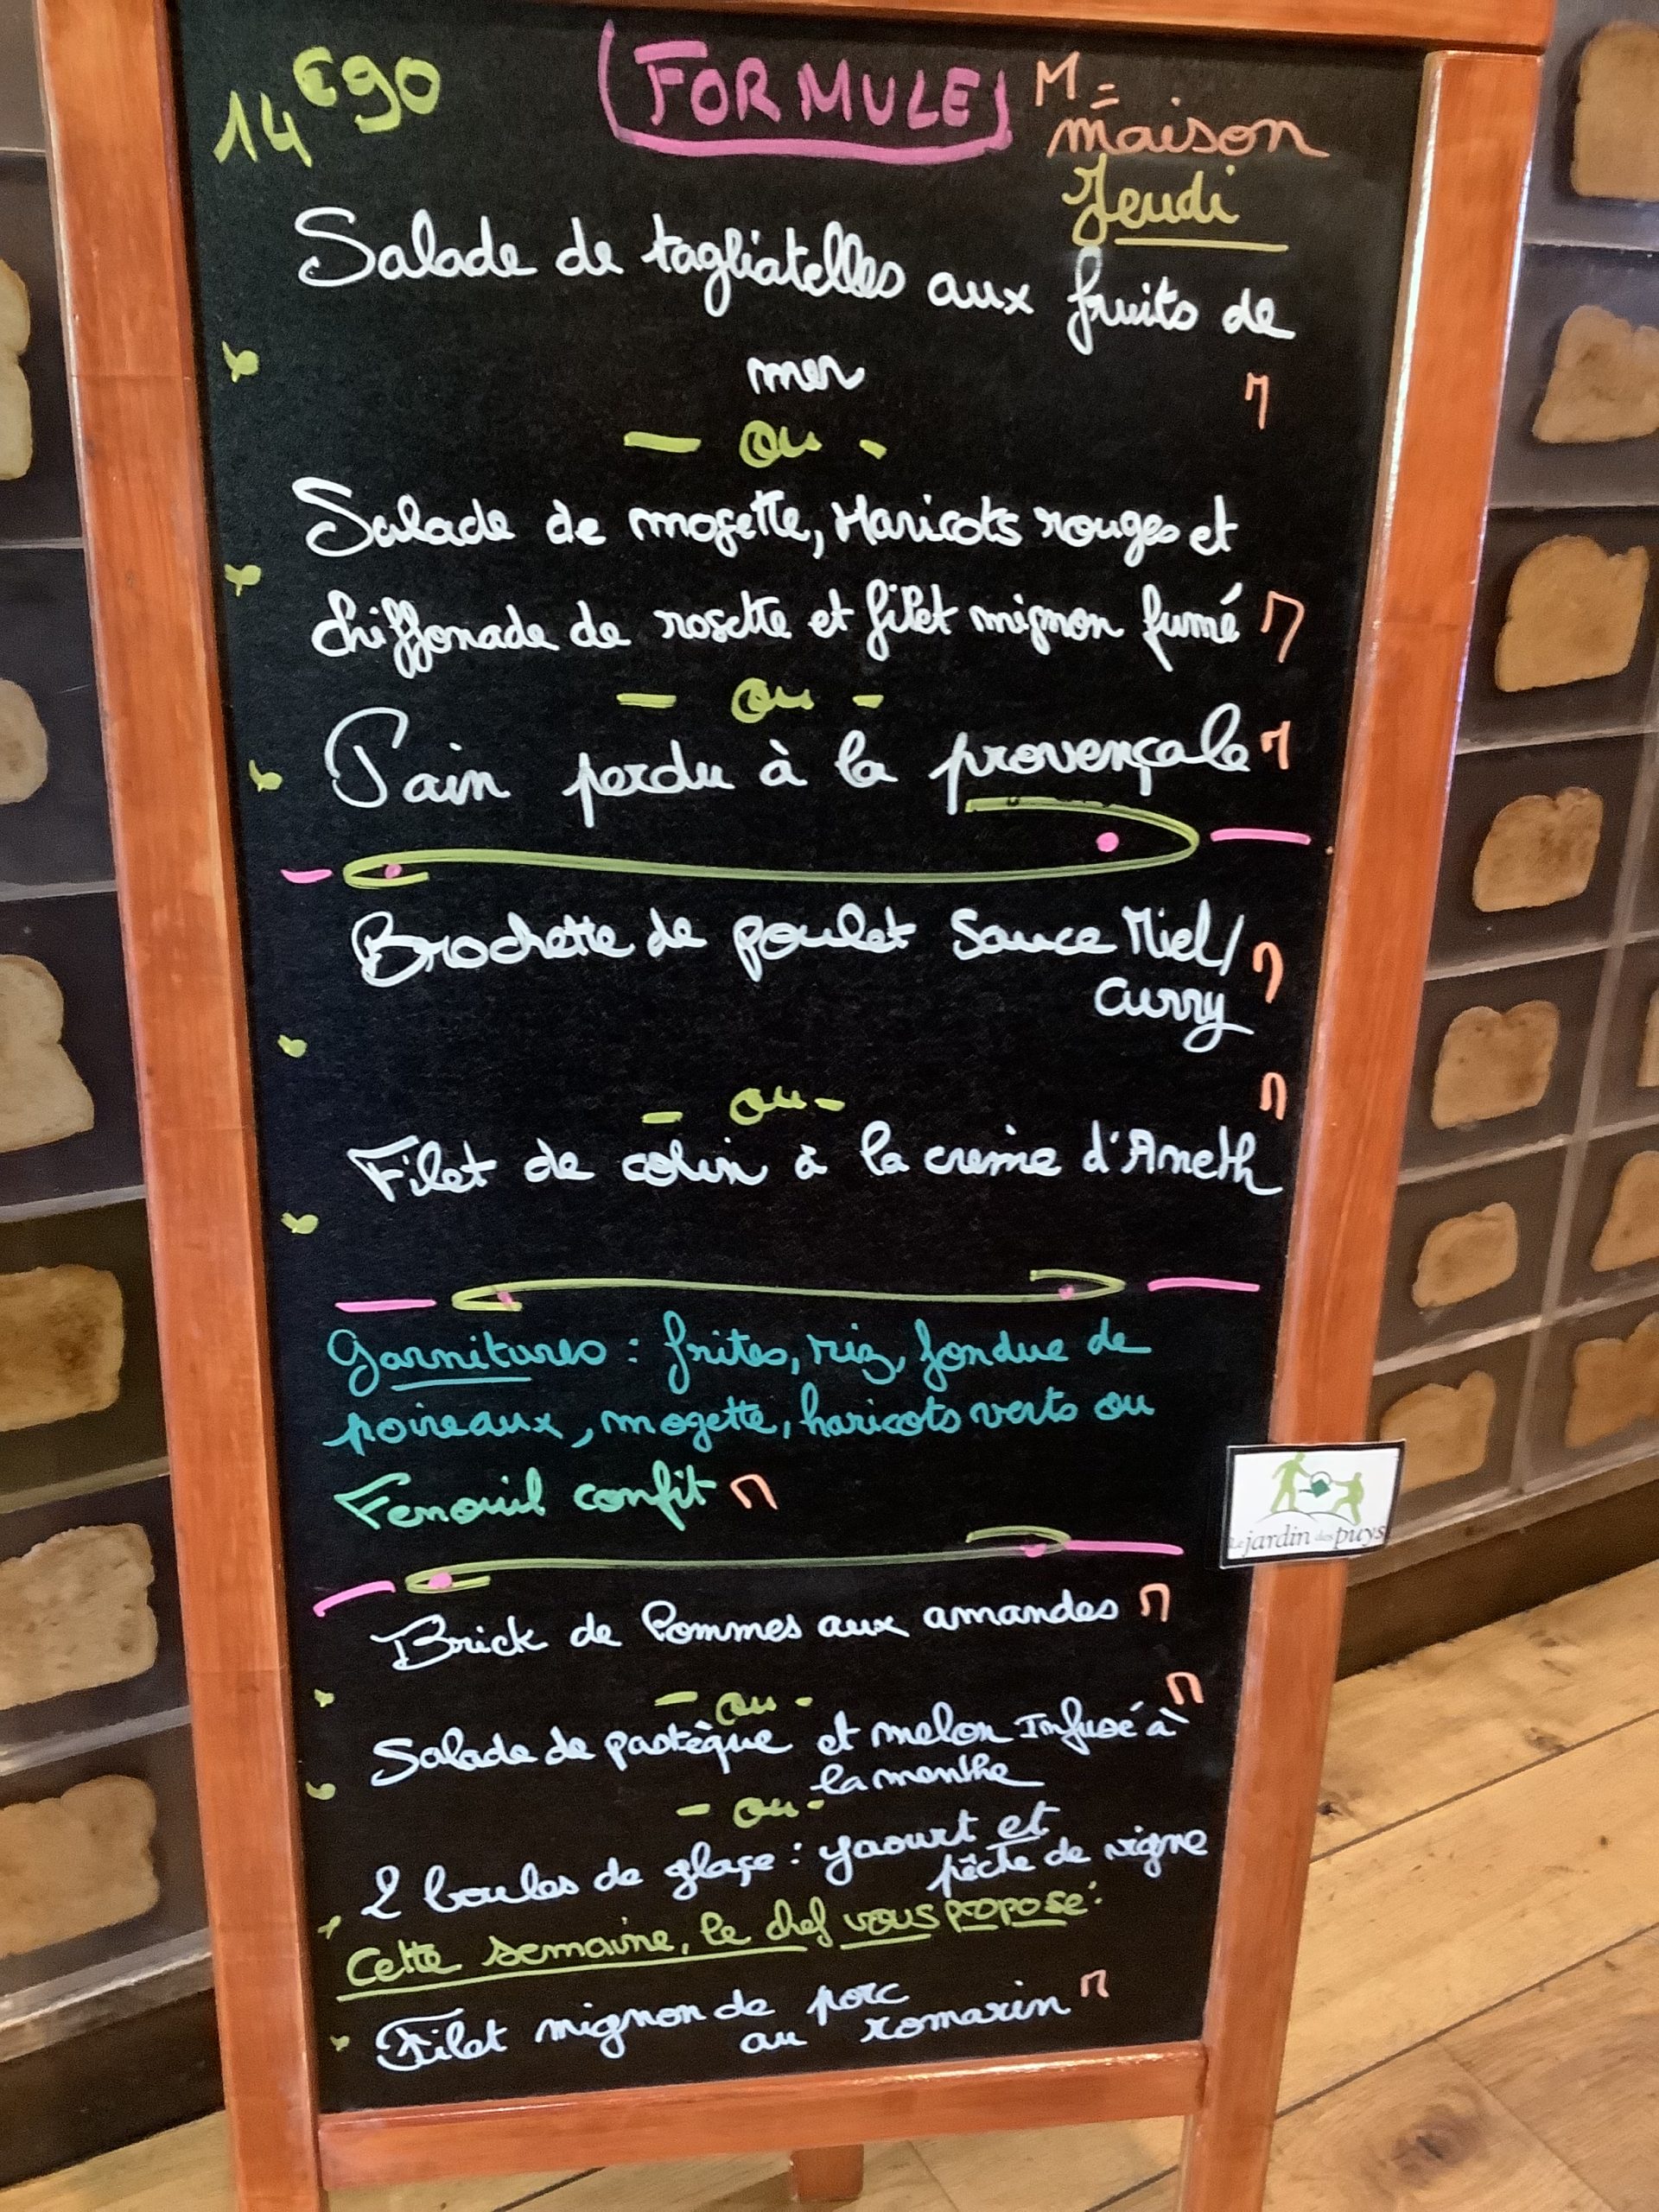 14€90 FORMULE M =
maison
Jeudi
Salade de tagliatelles aux fruits de
mer M
- ou -
Salade de mogette, Haricots rouges et
chiffonade de rosette et filet mignon fumé M
- ou -
Pain perdu à la provençale M
Brochette de poulet Sauce Miel/ M
Curry
- ou - M
Filet de colin à la crème d'Aneth
Garnitures : frites, riz, fondue de
poireaux, mogette, haricots verts ou
Fenouil confit M
Le jardin des puys
Brick de Pommes aux amandes M
- ou - M
Salade de pastèque et melon Infusé à
la menthe
- ou -
2 boules de glaçe : yaourt et
pêche de vigne
Cette semaine, le chef vous propose :
Filet mignon de porc M
au romarin